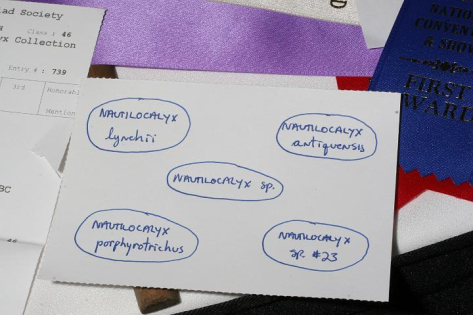 iad Society
Class: 46
yx Collection
Entry #: 739
3rd
Mention
BC
D
NATIO
CONVEN
& SHO
FIRST
WARD
NAUTILOCALYX
lynchii
NAUTILOCALYX
antiquensis
NAUTILOCALYX sp.
NAUTILOCALYX
porphyrotrichus
NAUTILOCALYX
sp. #23